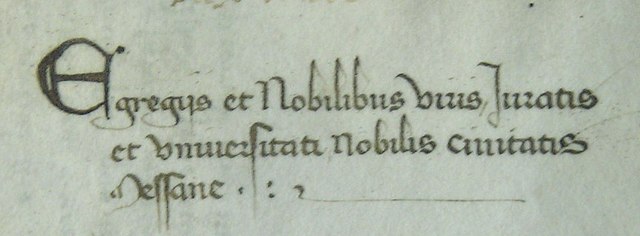 Egregijs et Nobilibus viris Juratis
et vniuersitati Nobilis ciuitatis
Messane . : ,